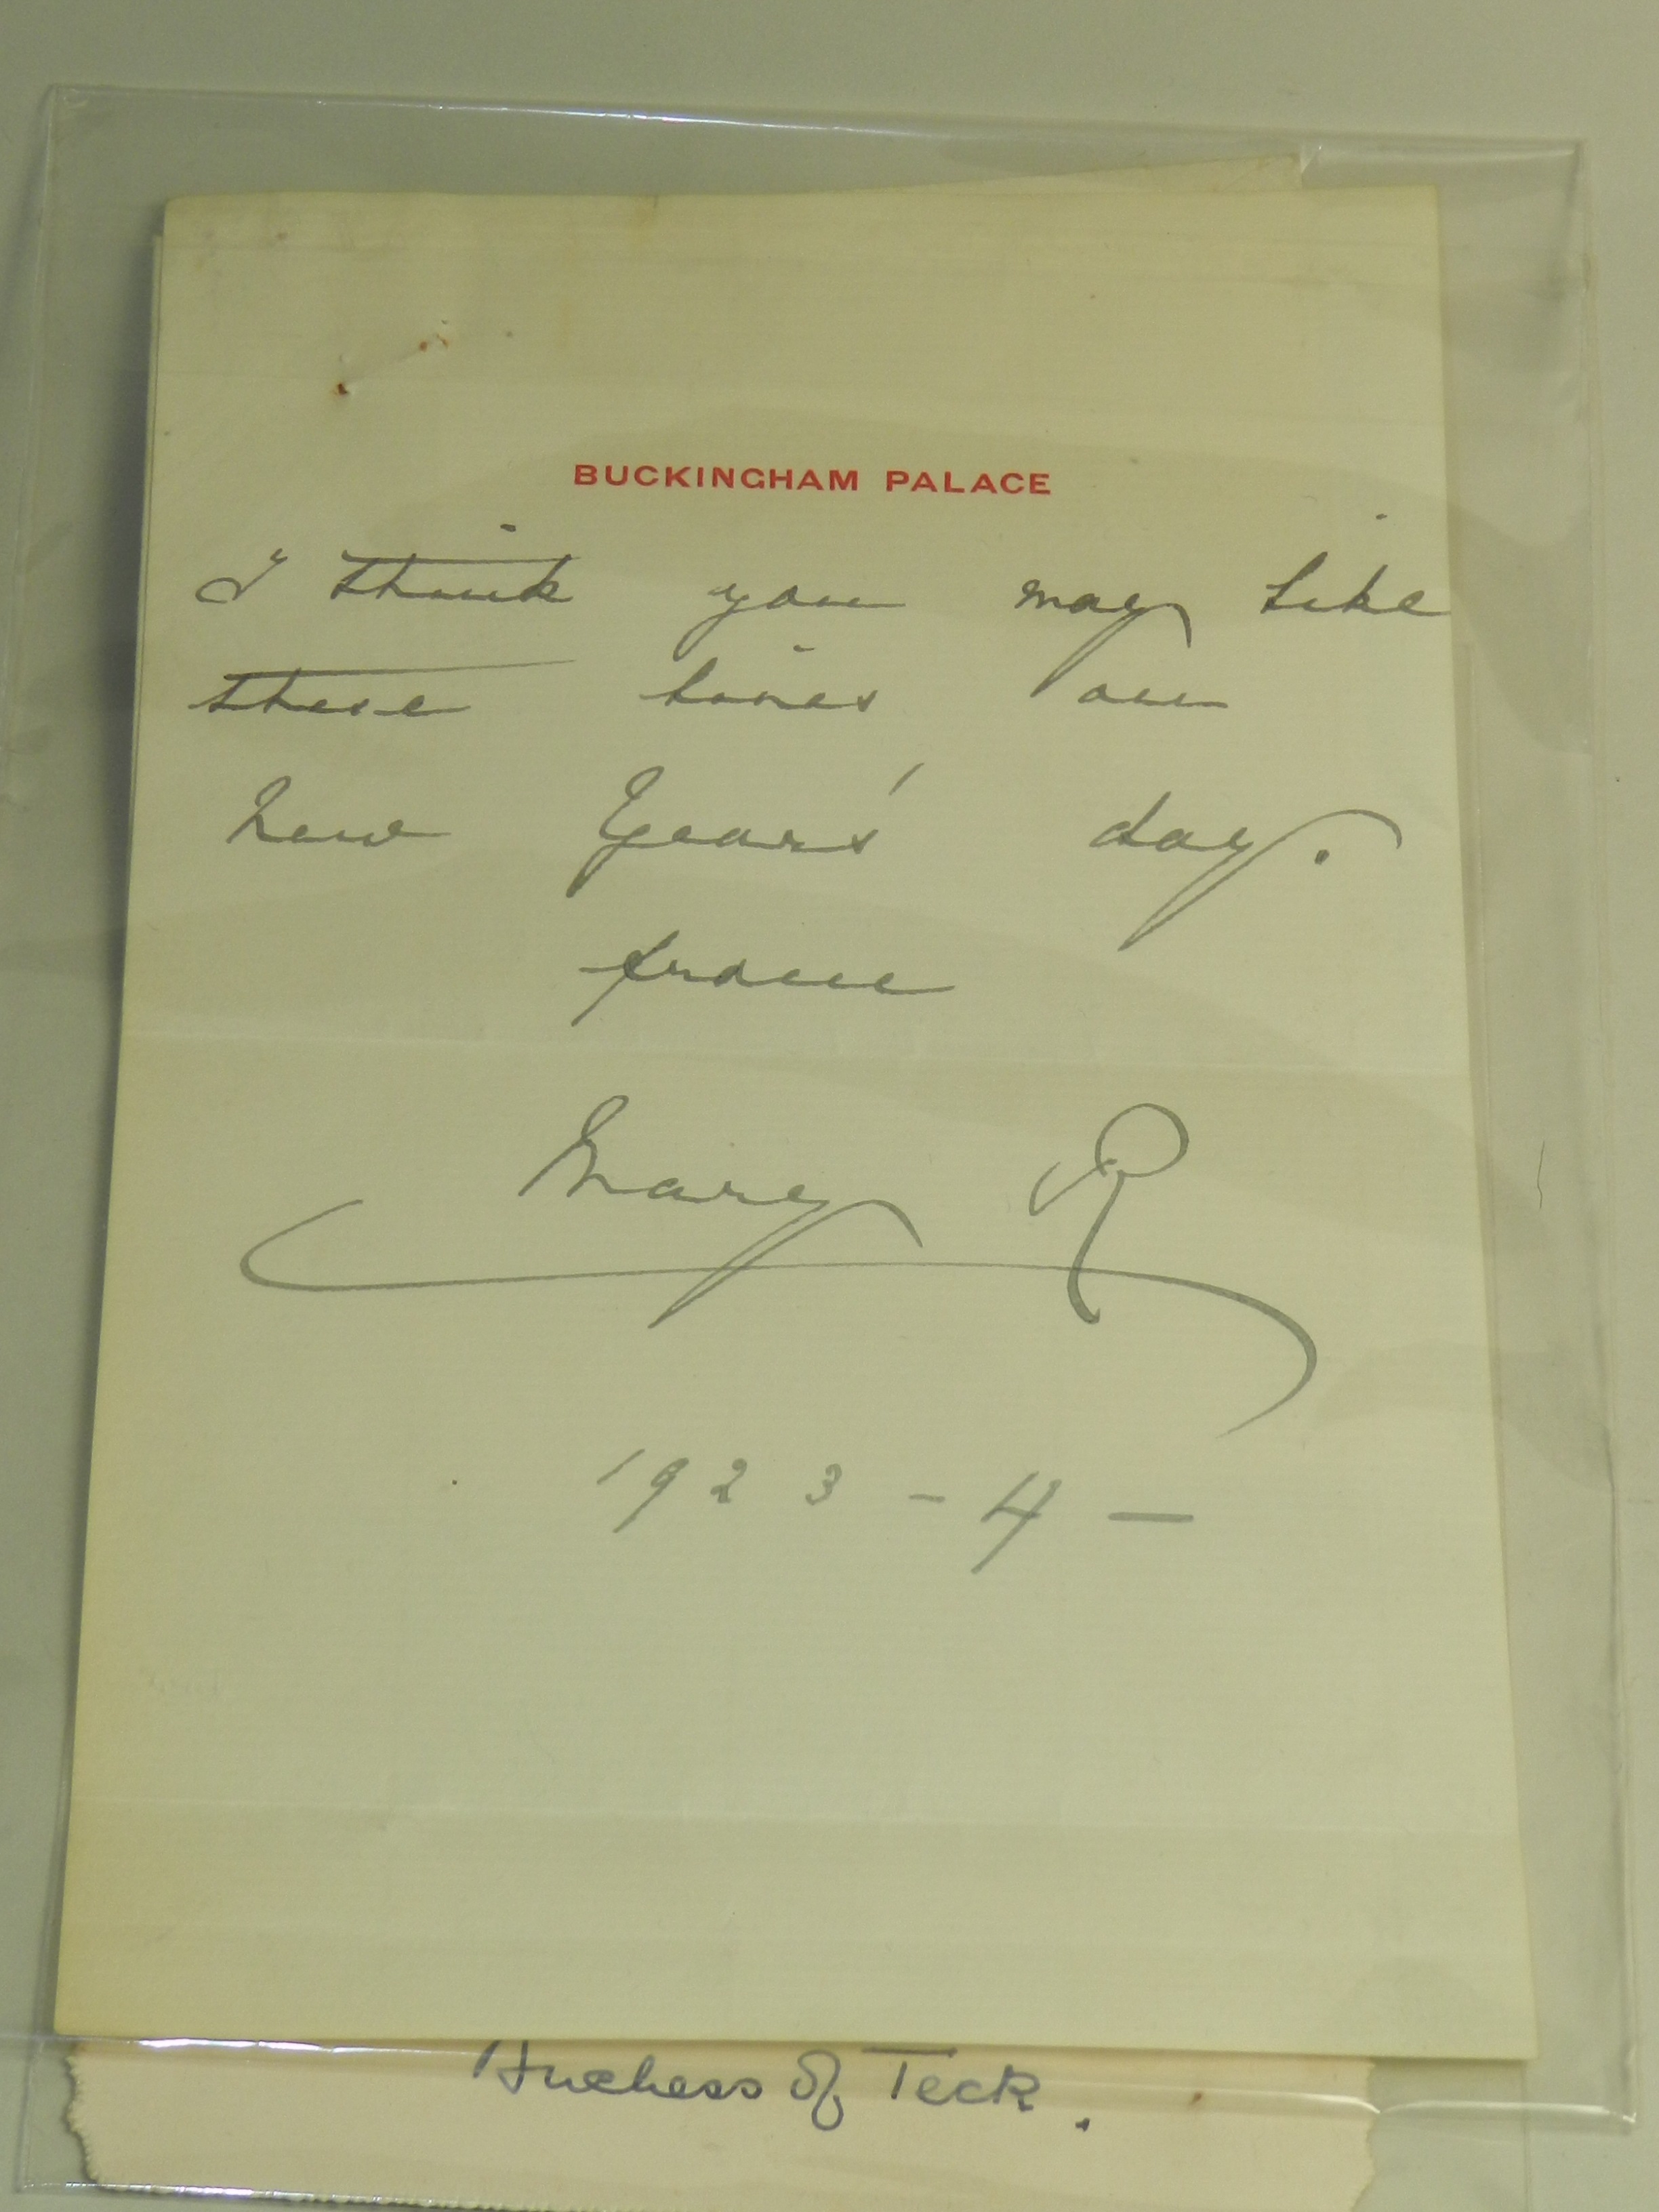 BUCKINGHAM PALACE
I think you may like
these lines on
New Years' day.
from
Mary R
1923-4—
Duchess of Teck.